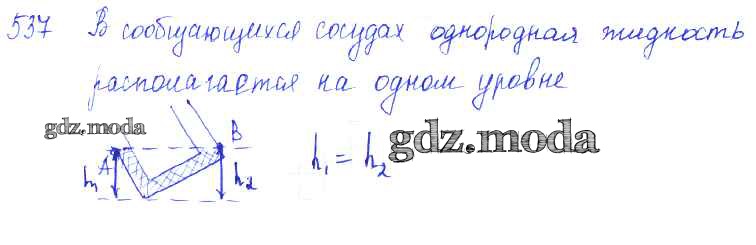 537 В сообщающихся сосудах однородная жидность
располагается на одном уровне
gdz.moda
A B
h₁ h₂
h₁ = h₂
gdz.moda